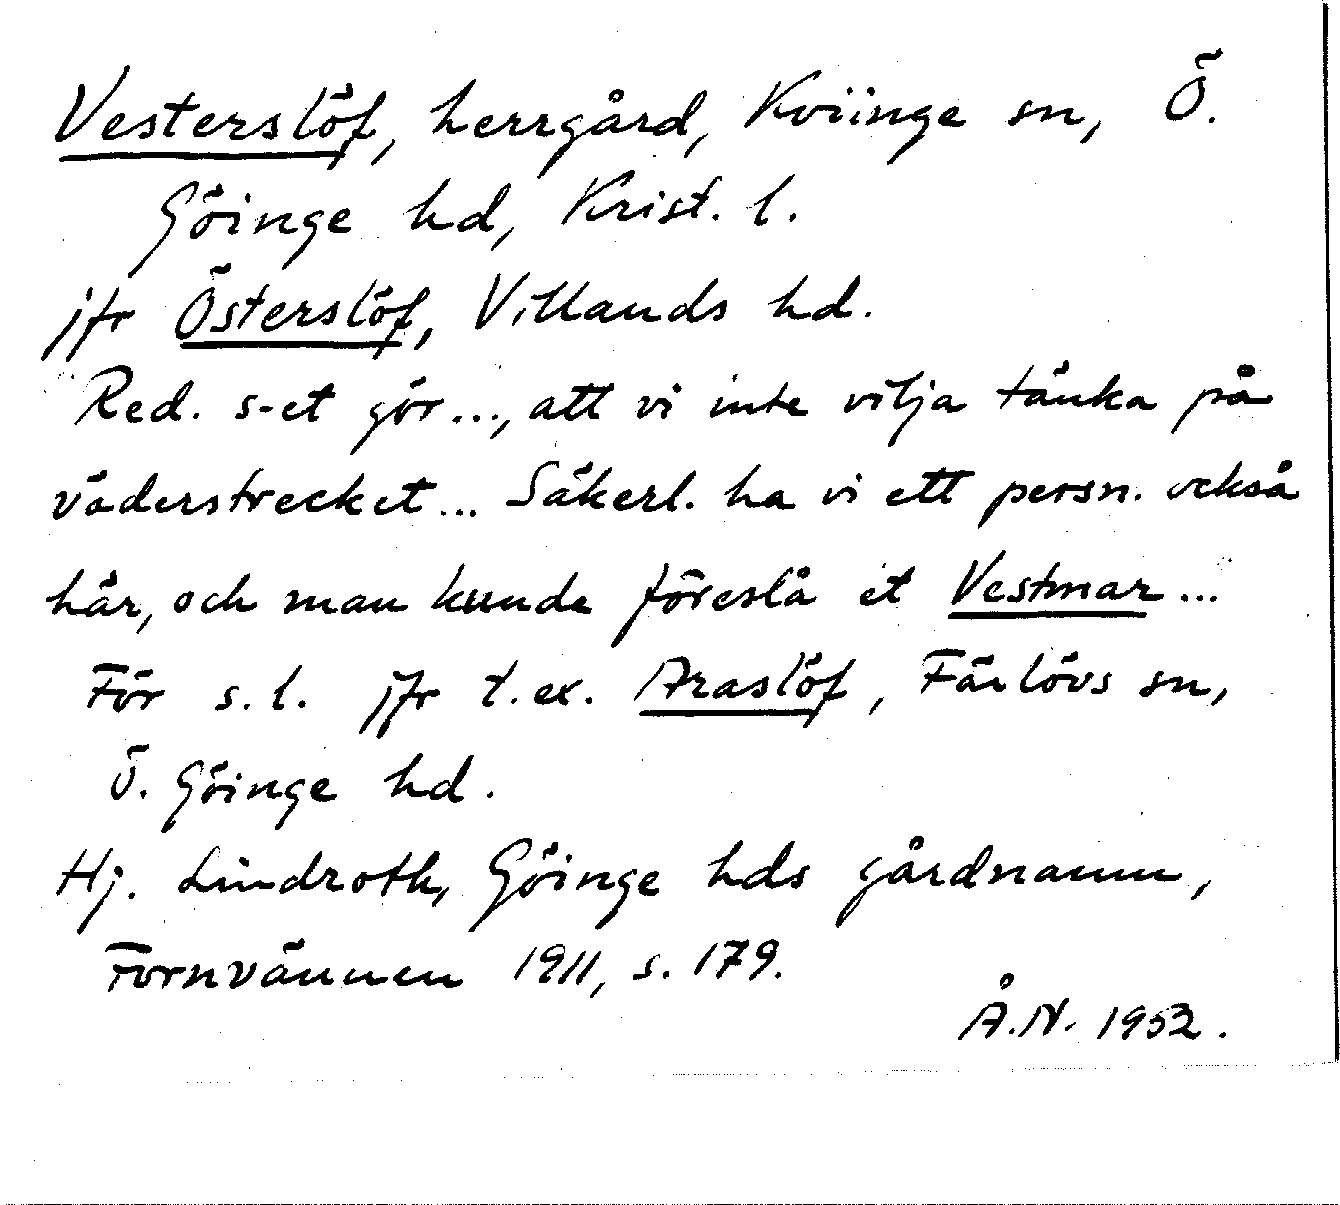 Vesterslöf, herrgård, Kviinge sn, Ö.
Göinge hd, Krist. l.
jfr Österslöf, Villands hd.
Red. s-et gör..., att vi inte vilja tänka på
väderstrecket... Säkerl. ha vi ett persn. också
här, och man kunde föreslå et Vestmar...
För s. l. jfr t.ex. Araslöf, Färlövs sn,
Ö. Göinge hd.
Hj. Lindroth, Göinge hds gårdnamn,
Fornvännen 1911, s. 179.
Å.N. 1952.